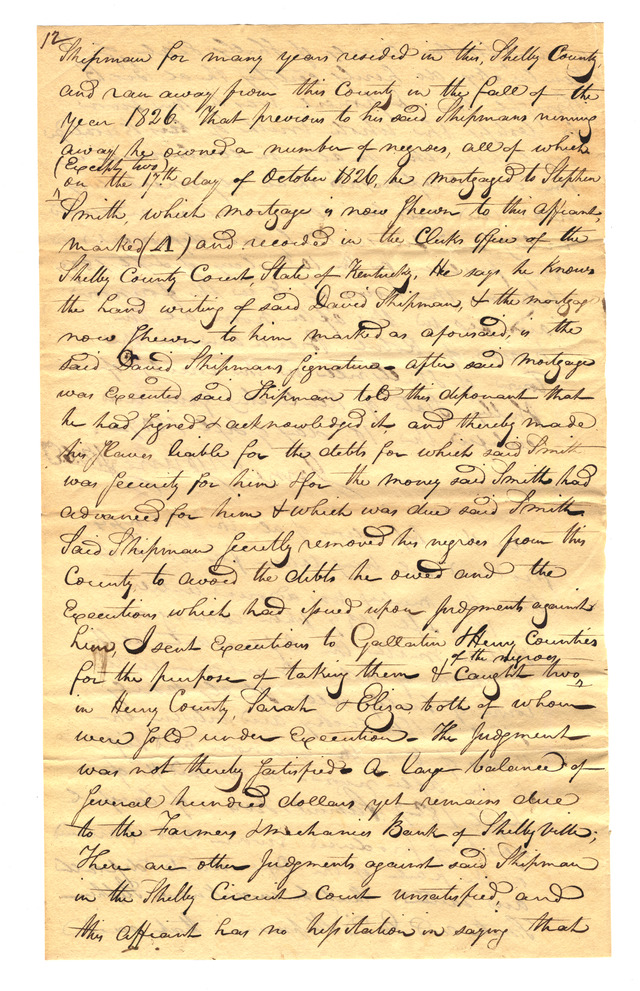 12
Shipman for many years resided in this, Shelby County
and ran away from this County in the fall of the
year 1826. That previous to his said Shipmans running
away he owned a number of negroes, all of which
(Except two)
on the 17th day of October 1826, he mortgaged to Stephen
Smith, which mortgage is now Shewn to this affiant,
marked (A) and recorded in the Clerks office of the
Shelby County Court, State of Kentucky, He says he knows
the hand writing of said David Shipman, & the mortgage
now Shewn to him marked as aforesaid, is the
said David Shipmans Signature - after said mortgage
was Executed said Shipman told this deponant that
he had Signed & acknowledged it and thereby made
his slaves liable for the debts for which said Smith
was Security for him & for the money said Smith had
advanced for him & which was due said Smith
Said Shipman Secretly removed his negroes from this
County to avoid the debts he owed and the
Executions which had issued upon Judgments against
him, I sent Executions to Gallatin & Henry Counties
of the negroes
for the purpose of taking them & Caught two
in Henry County, Sarah & Eliza, both of whom
were Sold under Execution - The Judgment
was not thereby Satisfied - A large balance of
Several hundred dollars yet remains due
to the Farmers & Mechanics Bank of Shelbyville;
There are other Judgments against said Shipman
in the Shelby Circuit Court unsatisfied, and
this affiant has no hesitation in saying that